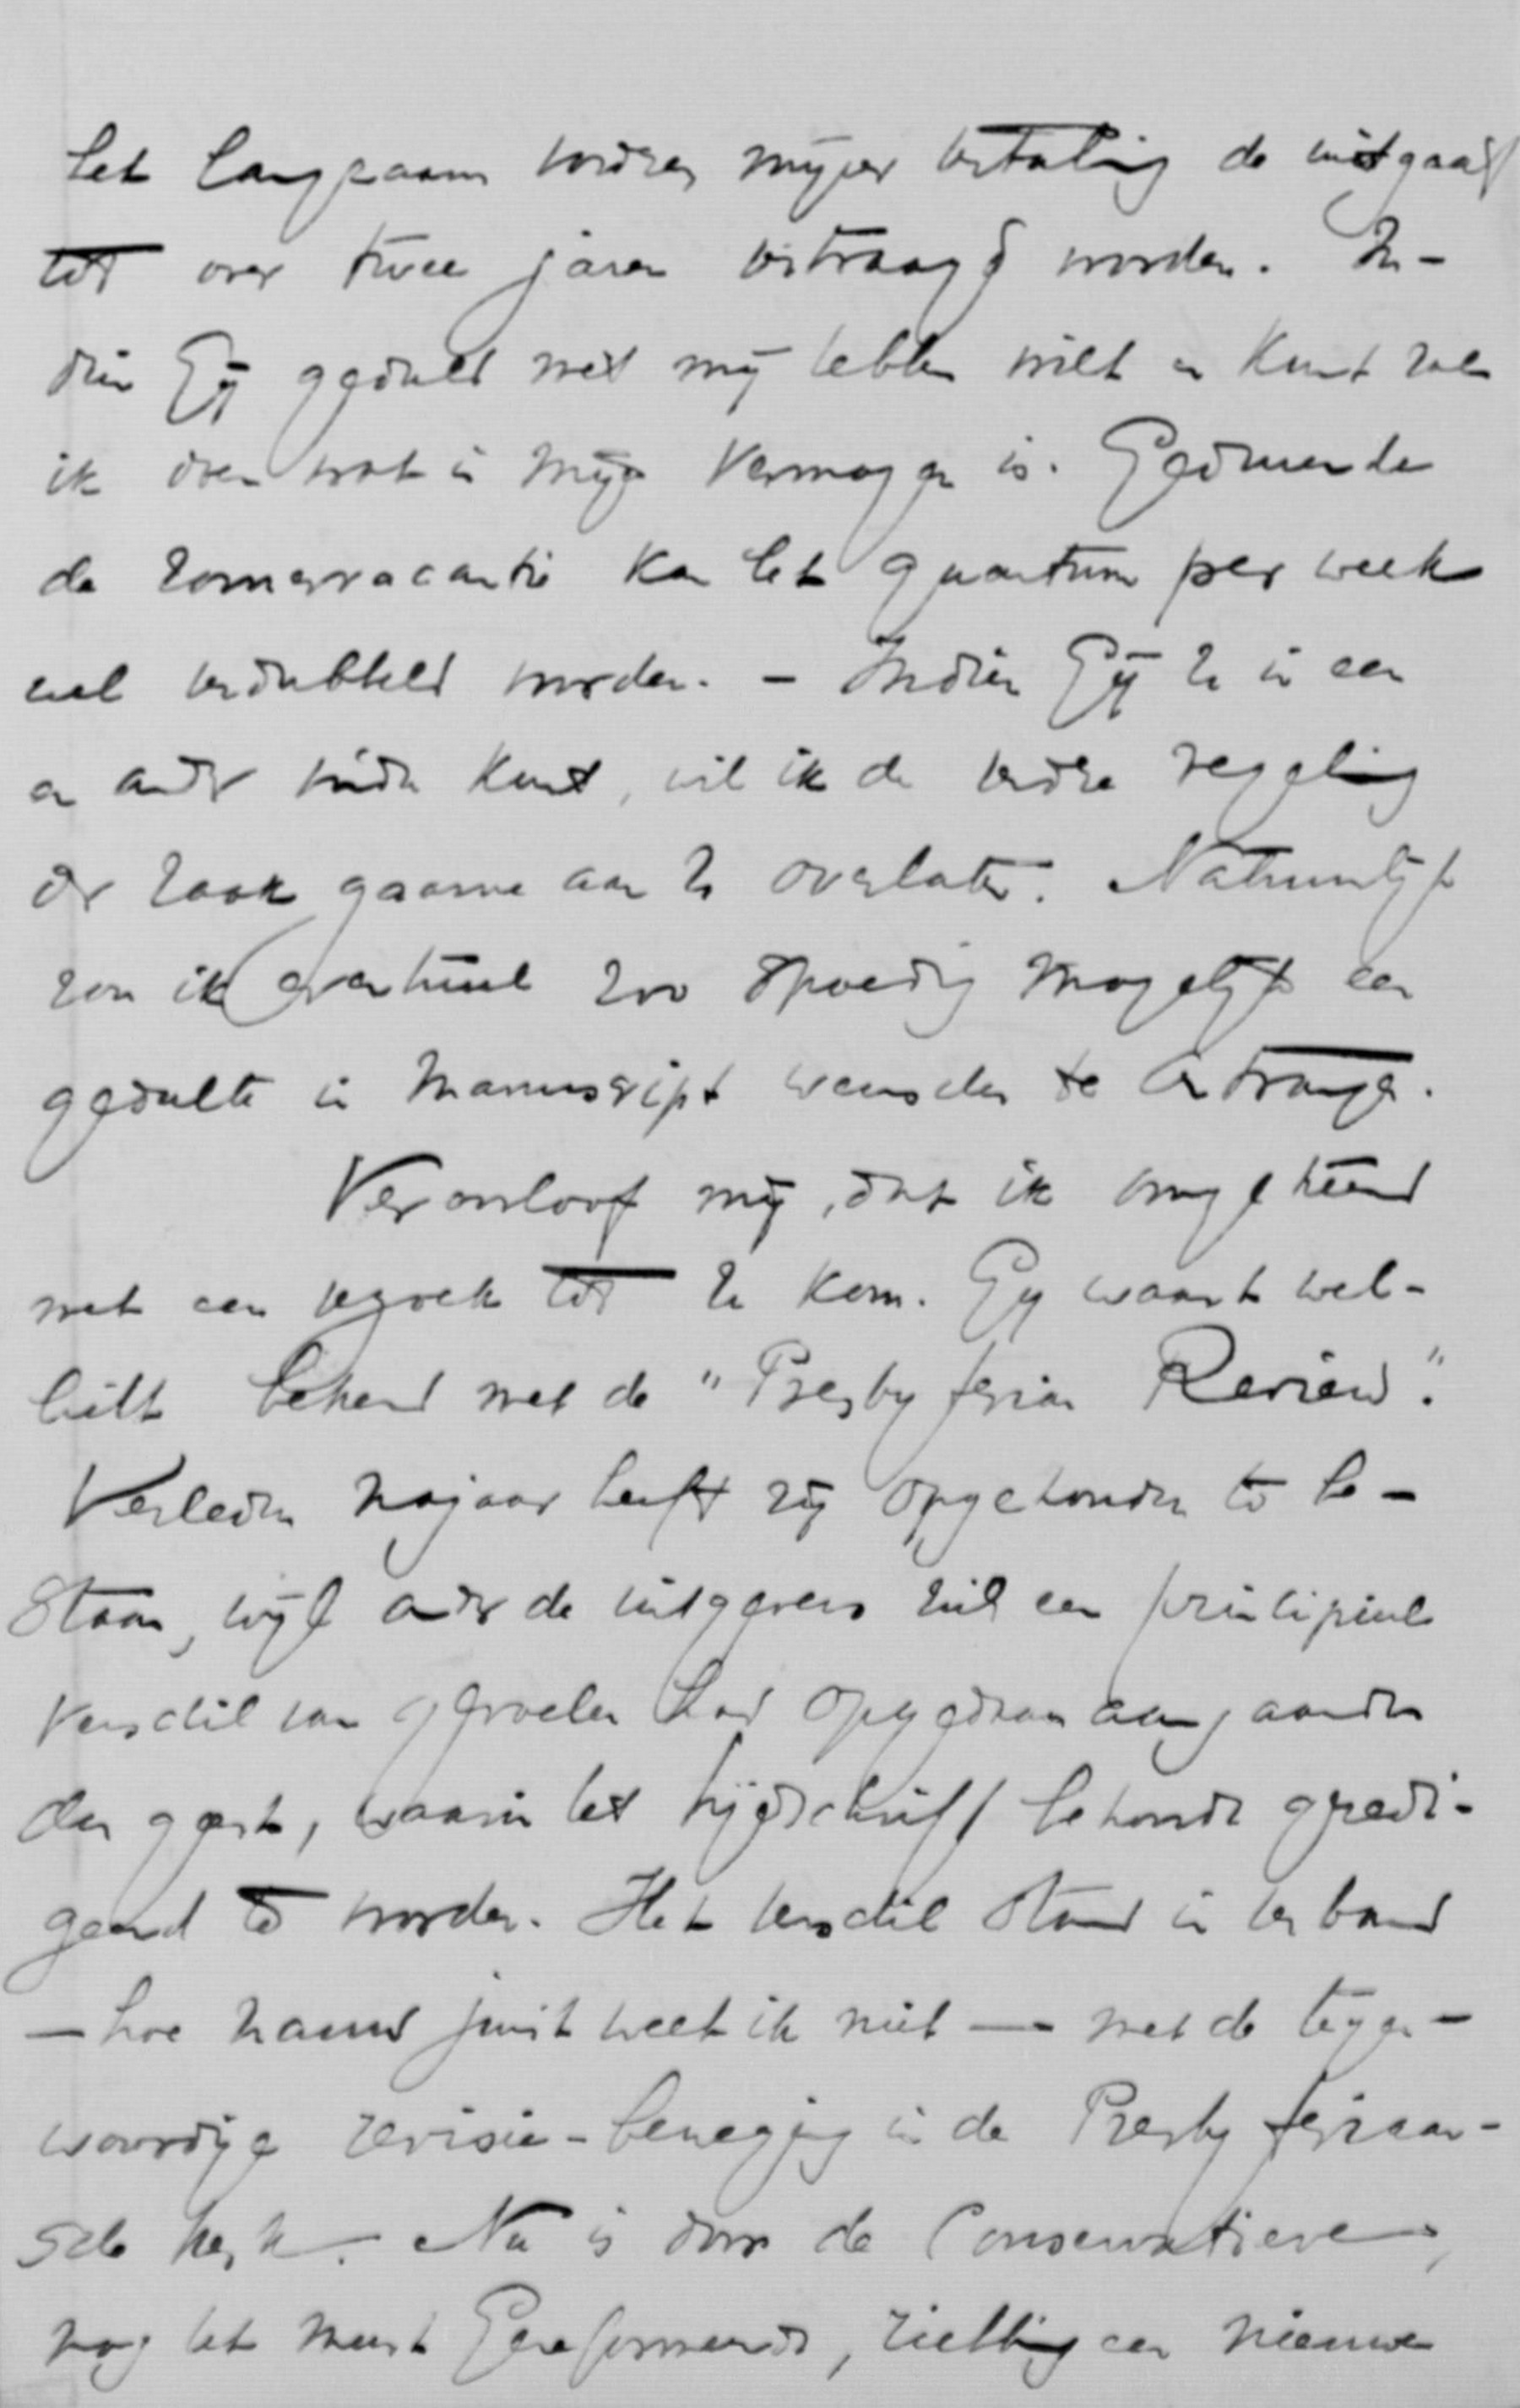 het langzaam vorderen mijner vertaling de uitgaaf
tot over twee jaren vertraagd worden. In-
dien Gij geduld met mij hebben wilt en kunt zal
ik doen wat in mijn vermogen is. Gedurende
de zomervacantie kan het quantum per week
wel verdubbeld worden. – Indien Gij U in een
en ander vinden kunt, wil ik de verdere regeling
der zaak gaarne aan U overlaten. Natuurlijk
zou ik eventueel zoo spoedig mogelijk een
gedeelte in manuscript wenschen te ontvangen.
Veroorloof mij, dat ik ongekeerd
met een verzoek tot U kom. Gij waart wel-
licht bekend met de "Presbyterian Review".
Verleden najaar heeft zij opgehouden te be-
staan, wijl onder de uitgevers zich een principieel
verschil van gevoelen had opgedaan aangaande
den geest, waarin het tijdschrift behoorde geredi-
geerd te worden. Het verschil stond in verband
— hoe nauw juist weet ik niet — met de tegen-
woordige revisie-beweging in de Presbyteriaan-
sche kerk. Nu is door de Conservatieven,
nog het meest Gereformeerde, richting een nieuwe